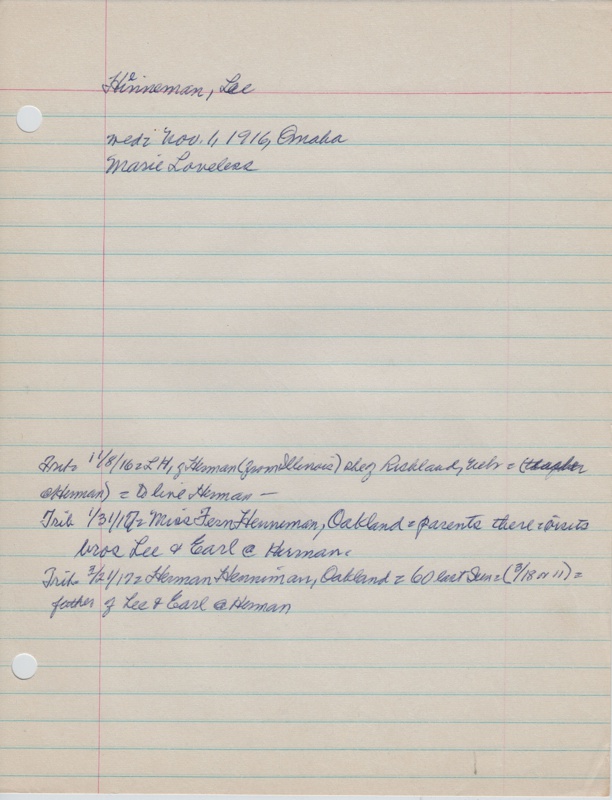 Hinneman, Lee
e
med: Nov. 1, 1916, Omaha
Marie Loveless
Trib 11/8/16 = LH, of Herman (from Illinois) she of Richland, Nebr = (teacher
@ Herman) = to live Herman —
Trib 1/31/17 = Miss Fern Henneman, Oakland = parents there = visits
bros Lee & Earl @ Herman.
Trib 3/21/17 = Herman Henneman, Oakland = 60 last Sun = (3/18 or 11) =
father of Lee & Earl @ Herman